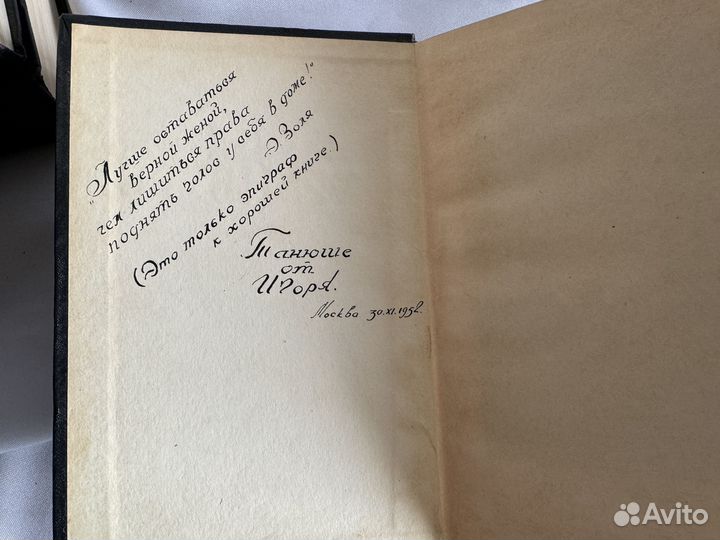 "Лучше оставаться
верной женой,
чем лишиться права
поднять голос у себя в доме!"
Э. Золя
(Это только эпиграф
к хорошей книге.)
Танюше
от
Игоря.
Москва 30.XI.1952.
Avito